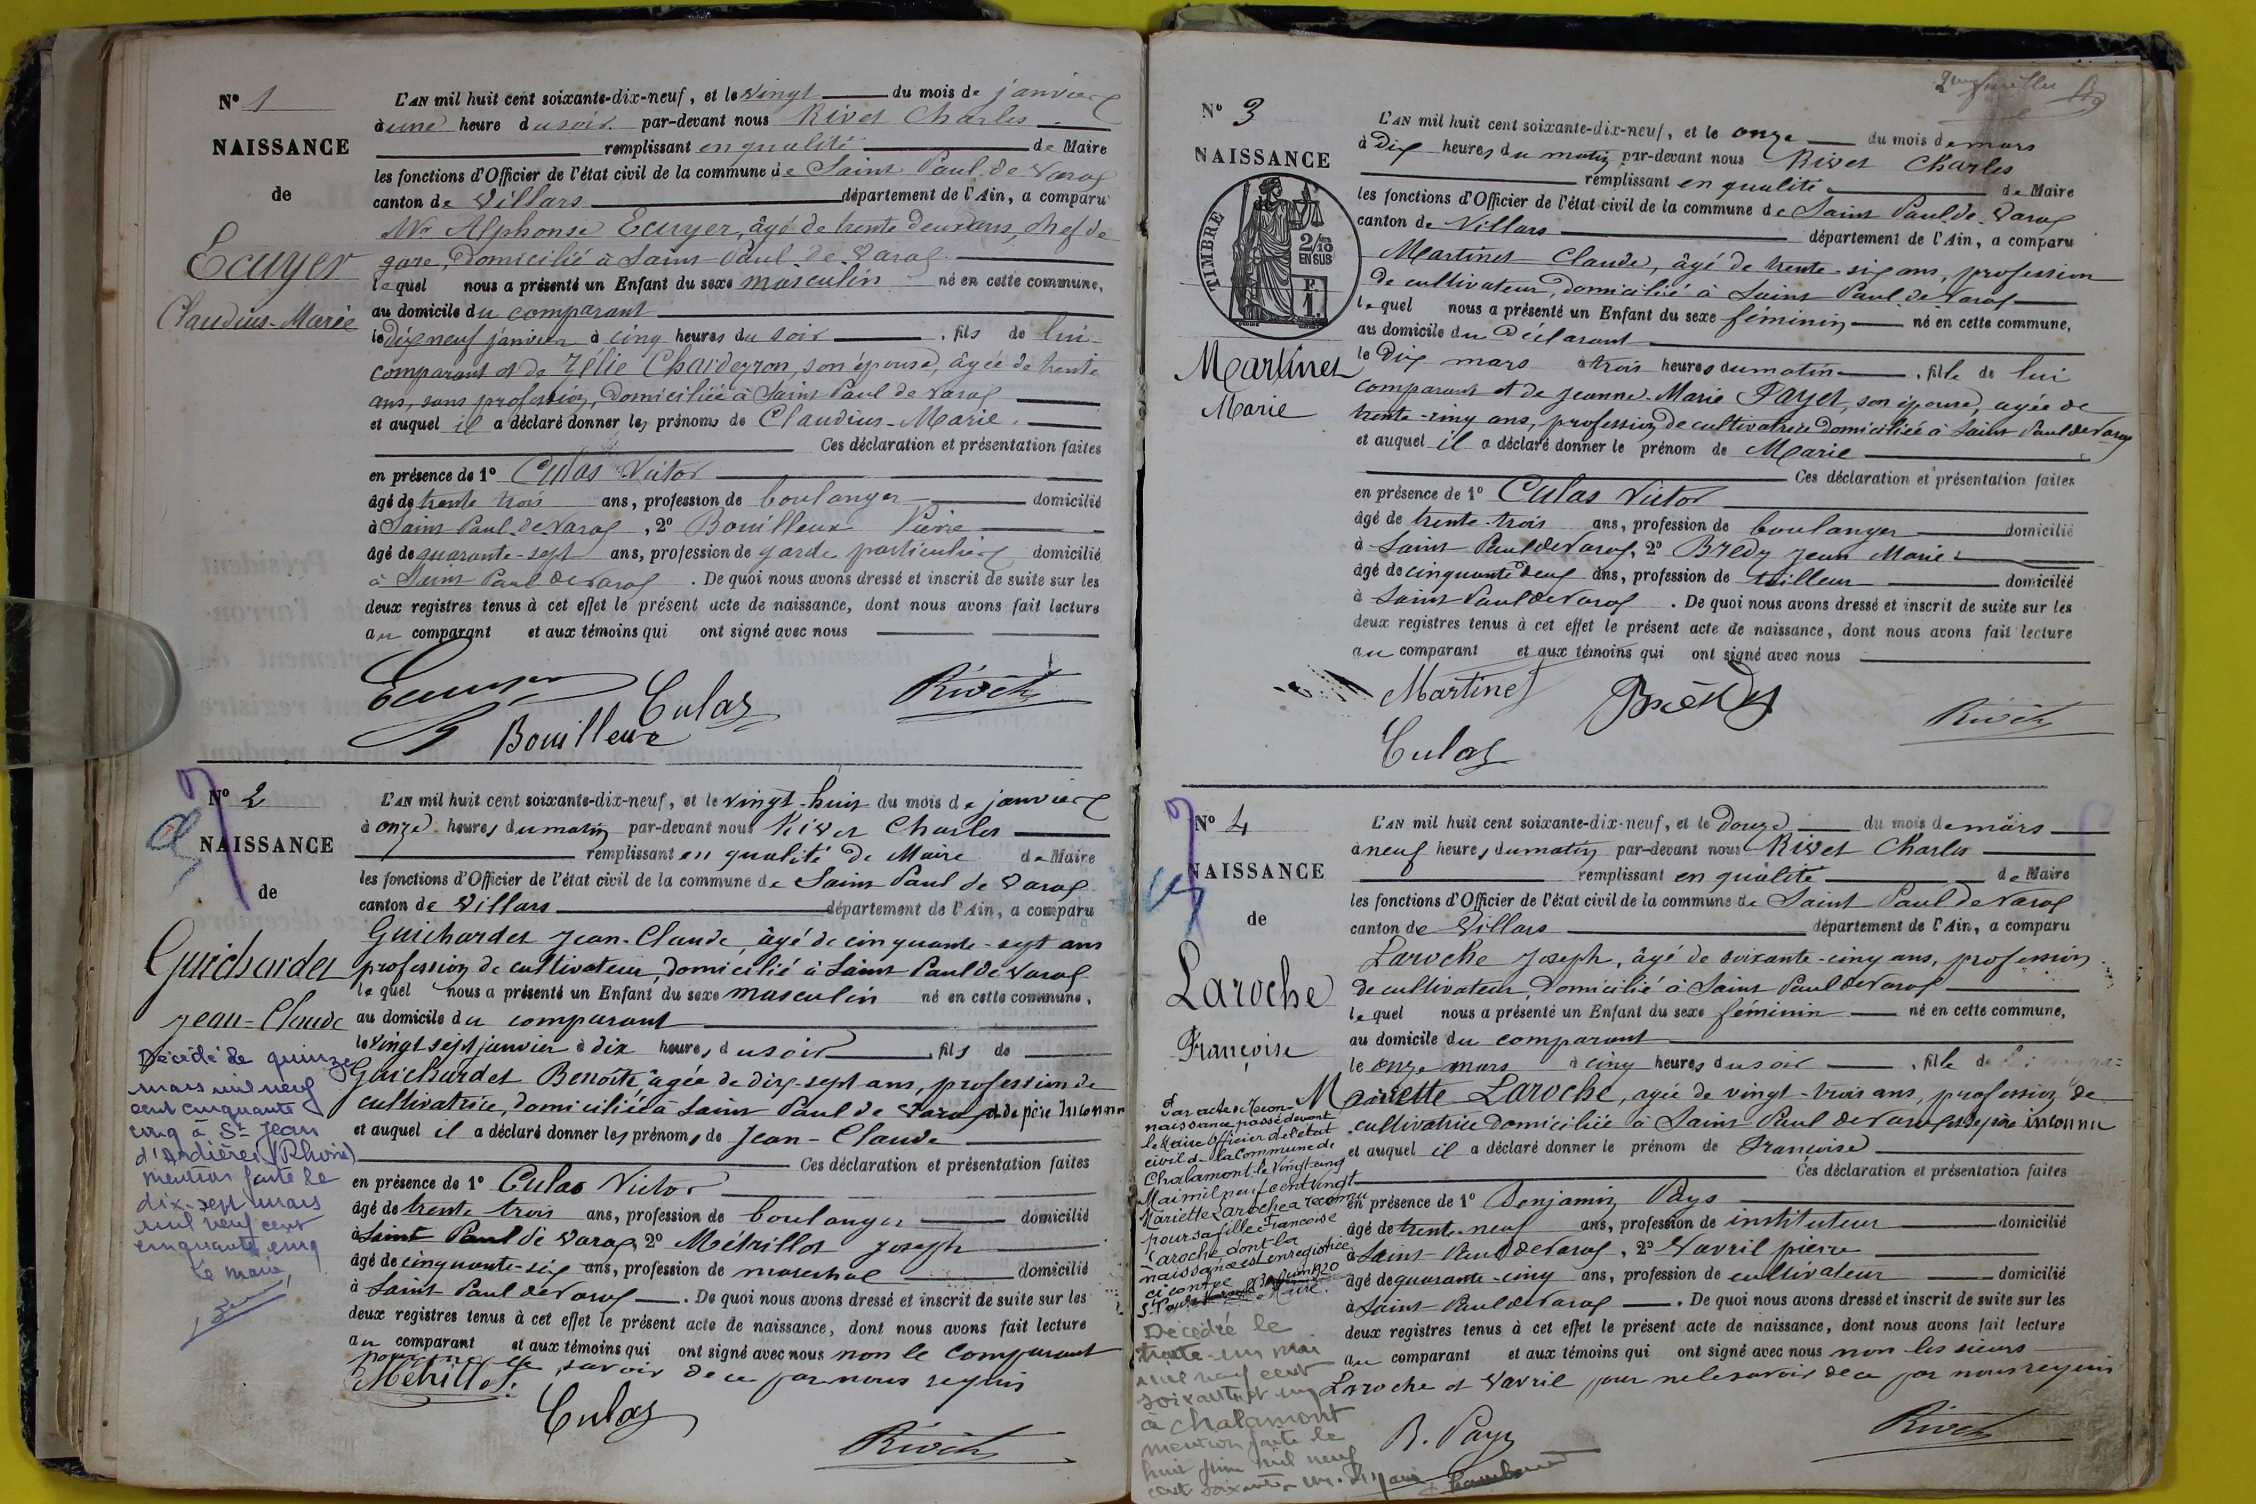 Nº 1
NAISSANCE
de
Ecuyer
Claudius-Marie
L'AN mil huit cent soixante-dix-neuf, et le vingt du mois de janvier
à une heure du soir par-devant nous Rivet Charles
remplissant en qualité de Maire
les fonctions d'Officier de l'état civil de la commune de Saint Paul de Varax
canton de Villars département de l'Ain, a comparu
Mr Alphonse Ecuyer, âgé de trente deux ans, chef de
gare, domicilié à Saint Paul de Varax
lequel nous a présenté un Enfant du sexe masculin né en cette commune,
au domicile du comparant
le dix neuf janvier à cinq heures du soir, fils de lui
comparant et de Zélie Chauderron, son épouse, âgée de trente
ans, sans profession, domiciliée à Saint Paul de Varax
et auquel il a déclaré donner les prénoms de Claudius-Marie.
Ces déclaration et présentation faites
en présence de 1º Culas Victor
âgé de trente trois ans, profession de boulanger domicilié
à Saint Paul de Varax, 2º Bouilleux Pierre
âgé de quarante-sept ans, profession de garde particulier domicilié
à Saint Paul de Varax. De quoi nous avons dressé et inscrit de suite sur les
deux registres tenus à cet effet le présent acte de naissance, dont nous avons fait lecture
au comparant et aux témoins qui ont signé avec nous
Ecuyer
Culas
Rivet
Bouilleux
Nº 2
NAISSANCE
de
Guichardet
Jean-Claude
Décédé le quinze
mars mil neuf
cent cinquante
cinq à St Jean
d'Ardières (Rhône)
mention faite le
dix-sept mars
mil neuf cent
cinquante cinq
Le maire,
L'AN mil huit cent soixante-dix-neuf, et le vingt-huit du mois de janvier
à onze heures du matin par-devant nous Rivet Charles
remplissant en qualité de Maire de Maire
les fonctions d'Officier de l'état civil de la commune de Saint Paul de Varax
canton de Villars département de l'Ain, a comparu
Guichardet Jean-Claude, âgé de cinquante-sept ans
profession de cultivateur, domicilié à Saint Paul de Varax
lequel nous a présenté un Enfant du sexe masculin né en cette commune,
au domicile du comparant
le vingt sept janvier à dix heures du soir, fils de
Guichardet Benoîte âgée de dix-sept ans, profession de
cultivatrice, domiciliée à Saint Paul de Varax et de père Inconnu
et auquel il a déclaré donner les prénoms de Jean-Claude
Ces déclaration et présentation faites
en présence de 1º Culas Victor
âgé de trente trois ans, profession de boulanger domicilié
à Saint Paul de Varax, 2º Métrillot Joseph
âgé de cinquante-six ans, profession de marechal domicilié
à Saint Paul de Varax. De quoi nous avons dressé et inscrit de suite sur les
deux registres tenus à cet effet le présent acte de naissance, dont nous avons fait lecture
au comparant et aux témoins qui ont signé avec nous non le comparant
pour ne le savoir de ce par nous requis
Métrillot
Culas
Rivet
2me feuillet
Nº 3
NAISSANCE
TIMBRE
2/10 EN SUS
F. 1.
Martinet
Marie
L'AN mil huit cent soixante-dix-neuf, et le onze du mois de mars
à dix heures du matin par-devant nous Rivet Charles
remplissant en qualité de Maire
les fonctions d'Officier de l'état civil de la commune de Saint Paul de Varax
canton de Villars département de l'Ain, a comparu
Martinet Claude, âgé de trente-six ans, profession
de cultivateur, domicilié à Saint Paul de Varax
lequel nous a présenté un Enfant du sexe féminin né en cette commune,
au domicile du Déclarant
le dix mars à trois heures du matin, fille de lui
comparant et de Jeanne-Marie Payet, son épouse, agée de
trente-cinq ans, profession de cultivatrice domiciliée à Saint Paul de Varax
et auquel il a déclaré donner le prénom de Marie
Ces déclaration et présentation faites
en présence de 1º Culas Victor
âgé de trente-trois ans, profession de boulanger domicilié
à Saint Paul de Varax, 2º Brédy Jean Marie
âgé de cinquante deux ans, profession de tailleur domicilié
à Saint Paul de Varax. De quoi nous avons dressé et inscrit de suite sur les
deux registres tenus à cet effet le présent acte de naissance, dont nous avons fait lecture
au comparant et aux témoins qui ont signé avec nous
Martinet
Brédy
Rivet
Culas
Nº 4
NAISSANCE
de
Laroche
Françoise
Par acte de recon
naissance passé devant
le Maire Officier de l'état
civil de la Commune de
Chalamont le vingt cinq
Mai mil neuf cent vingt
Mariette Laroche a reconnu
pour sa fille Françoise
Laroche dont la
naissance est enregistrée
ci contre
Décédée le
trente-un mai
mil neuf cent
soixante et un
à Chalamont
mention faite le
huit juin mil neuf
cent soixante un.
L'AN mil huit cent soixante-dix-neuf, et le douze du mois de mars
à neuf heures du matin par-devant nous Rivet Charles
remplissant en qualité de Maire
les fonctions d'Officier de l'état civil de la commune de Saint Paul de Varax
canton de Villars département de l'Ain, a comparu
Laroche Joseph, âgé de soixante-cinq ans, profession
de cultivateur, domicilié à Saint Paul de Varax
lequel nous a présenté un Enfant du sexe féminin né en cette commune,
au domicile du comparant
le onze mars à cinq heures du soir, fille de
Mariette Laroche, agée de vingt-trois ans, profession de
cultivatrice domiciliée à Saint Paul de Varax et de père inconnu
et auquel il a déclaré donner le prénom de Françoise
Ces déclaration et présentation faites
en présence de 1º Benjamin Pays
âgé de trente-neuf ans, profession de instituteur domicilié
à Saint Paul de Varax, 2º Vavril pierre
âgé de quarante-cinq ans, profession de cultivateur domicilié
à Saint Paul de Varax. De quoi nous avons dressé et inscrit de suite sur les
deux registres tenus à cet effet le présent acte de naissance, dont nous avons fait lecture
au comparant et aux témoins qui ont signé avec nous non les sieurs
Laroche et Vavril pour ne le savoir de ce par nous requis
B. Pays
Rivet